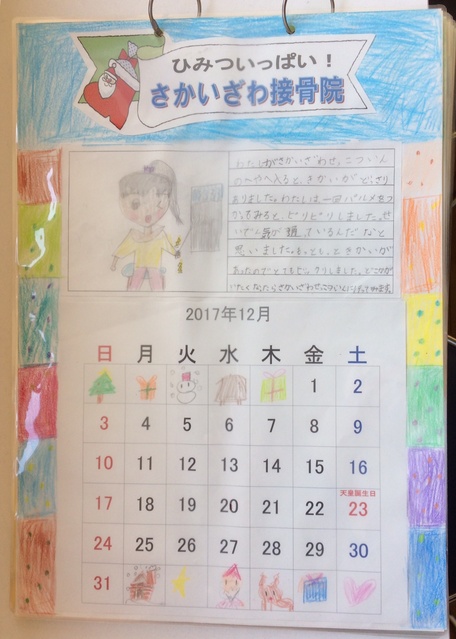 ひみついっぱい！
さかいざわ接骨院
わたしがさかいざわせっこついん
のへやへ入ると、きかいがどっさり
ありました。わたしは一つ
をみると、ビリビリしました。せ
いでん気が通っているんだなと
思いました。もっともっときかいが
あったのでとてもびっくりしました。どこかが
いたくなったらさかいざわせっこついんに
2017年12月
日 月 火 水 木 金 土
1 2
3 4 5 6 7 8 9
10 11 12 13 14 15 16
天皇誕生日
17 18 19 20 21 22 23
24 25 26 27 28 29 30
31